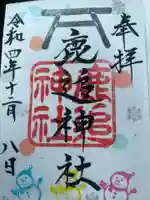 奉拝
鹿追神社
鹿追神社
令和四年十二月
八日